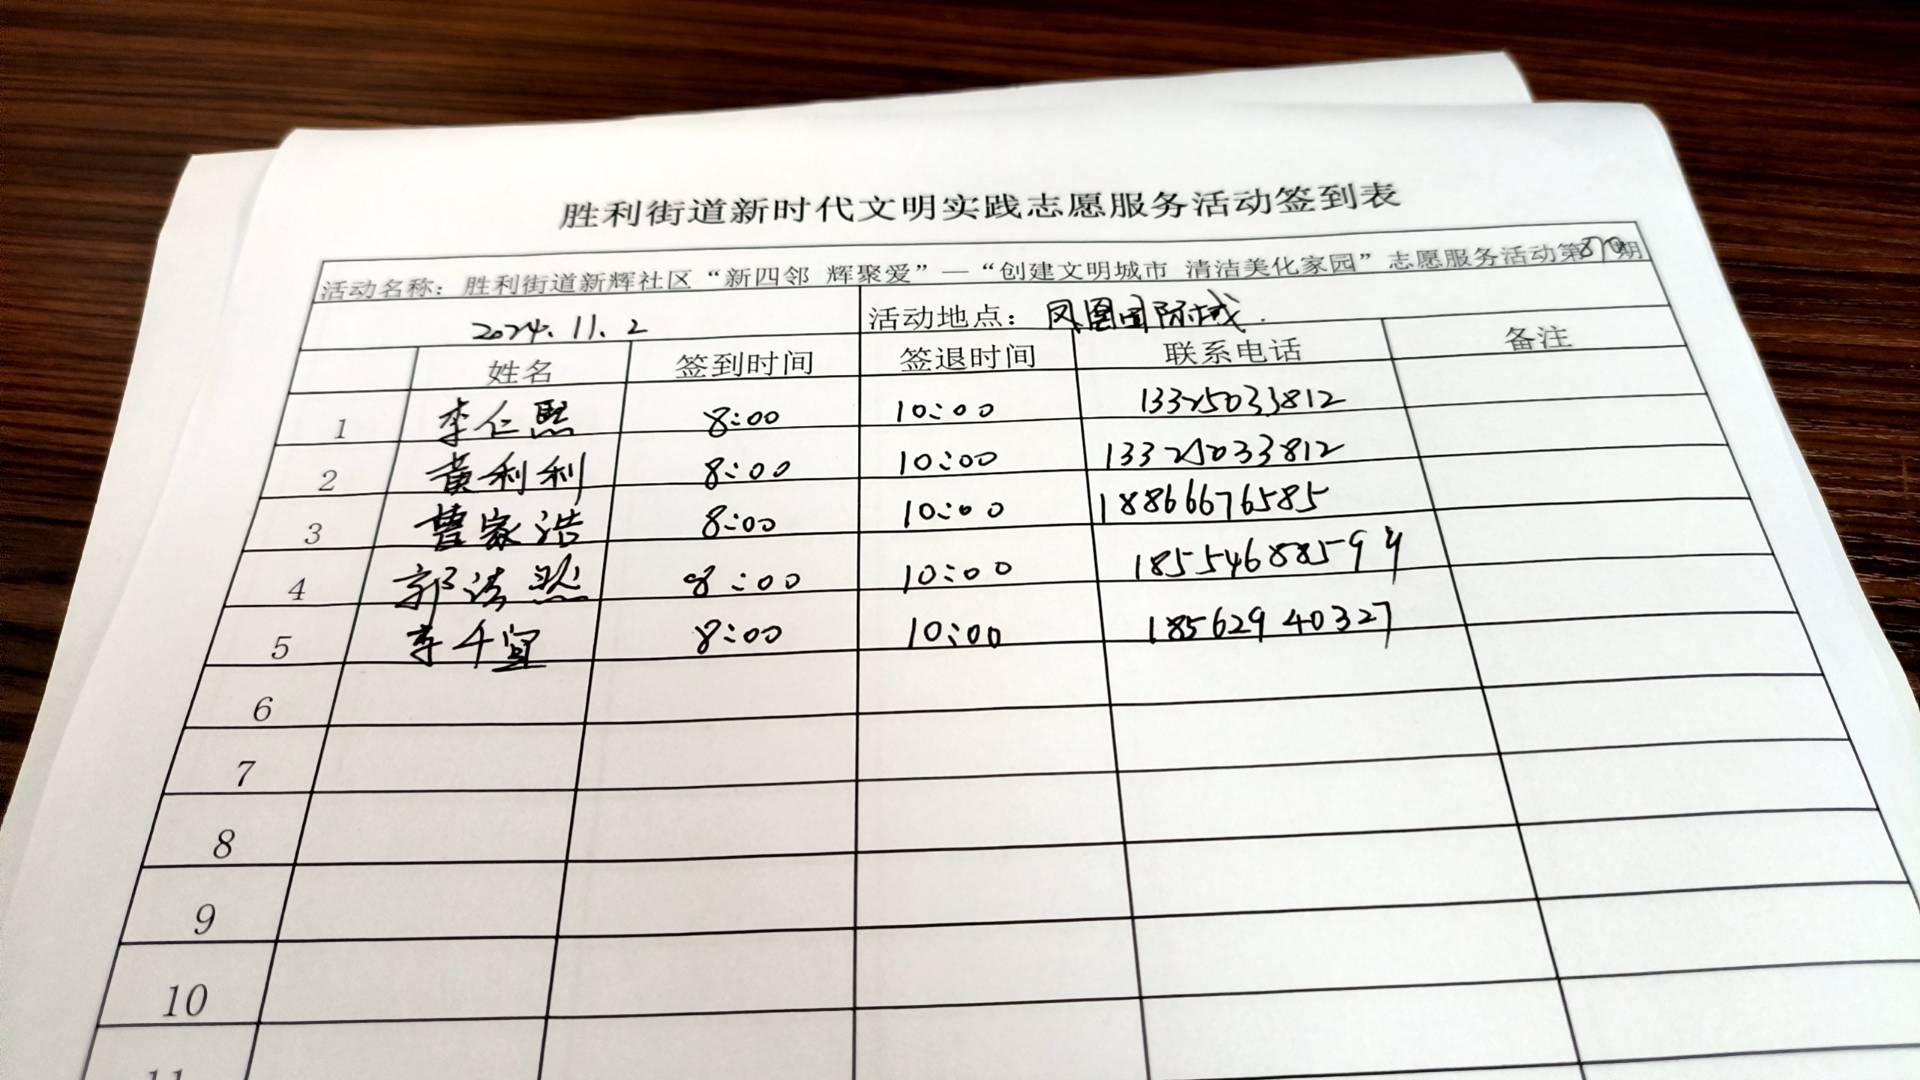 胜利街道新时代文明实践志愿服务活动签到表
活动名称：胜利街道新辉社区“新四邻 辉聚爱”—“创建文明城市 清洁美化家园”志愿服务活动第870期
2024.11.2 活动地点：凤凰国际城.
姓名 签到时间 签退时间 联系电话 备注
1 李仁熙 8:00 10:00 13325033812
2 黄利利 8:00 10:00 13325033812
3 曹家浩 8:00 10:00 18866676585
4 郭浩然 8:00 10:00 18554688594
5 李千宜 8:00 10:00 18562940327
6
7
8
9
10
11